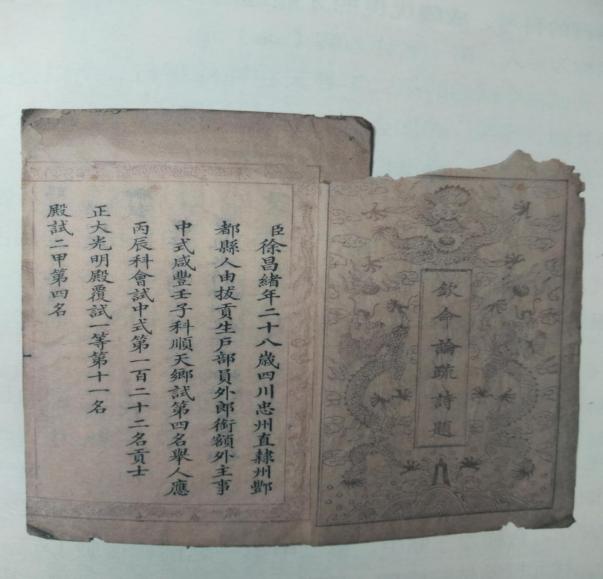 欽命論疏詩題
臣徐昌緒年二十八歲四川忠州直隸州酆
都縣人由拔貢生戶部員外郎銜額外主事
中式咸豐壬子科順天鄉試第四名舉人應
丙辰科會試中式第一百二十二名貢士
正大光明殿覆試一等第十一名
殿試二甲第四名